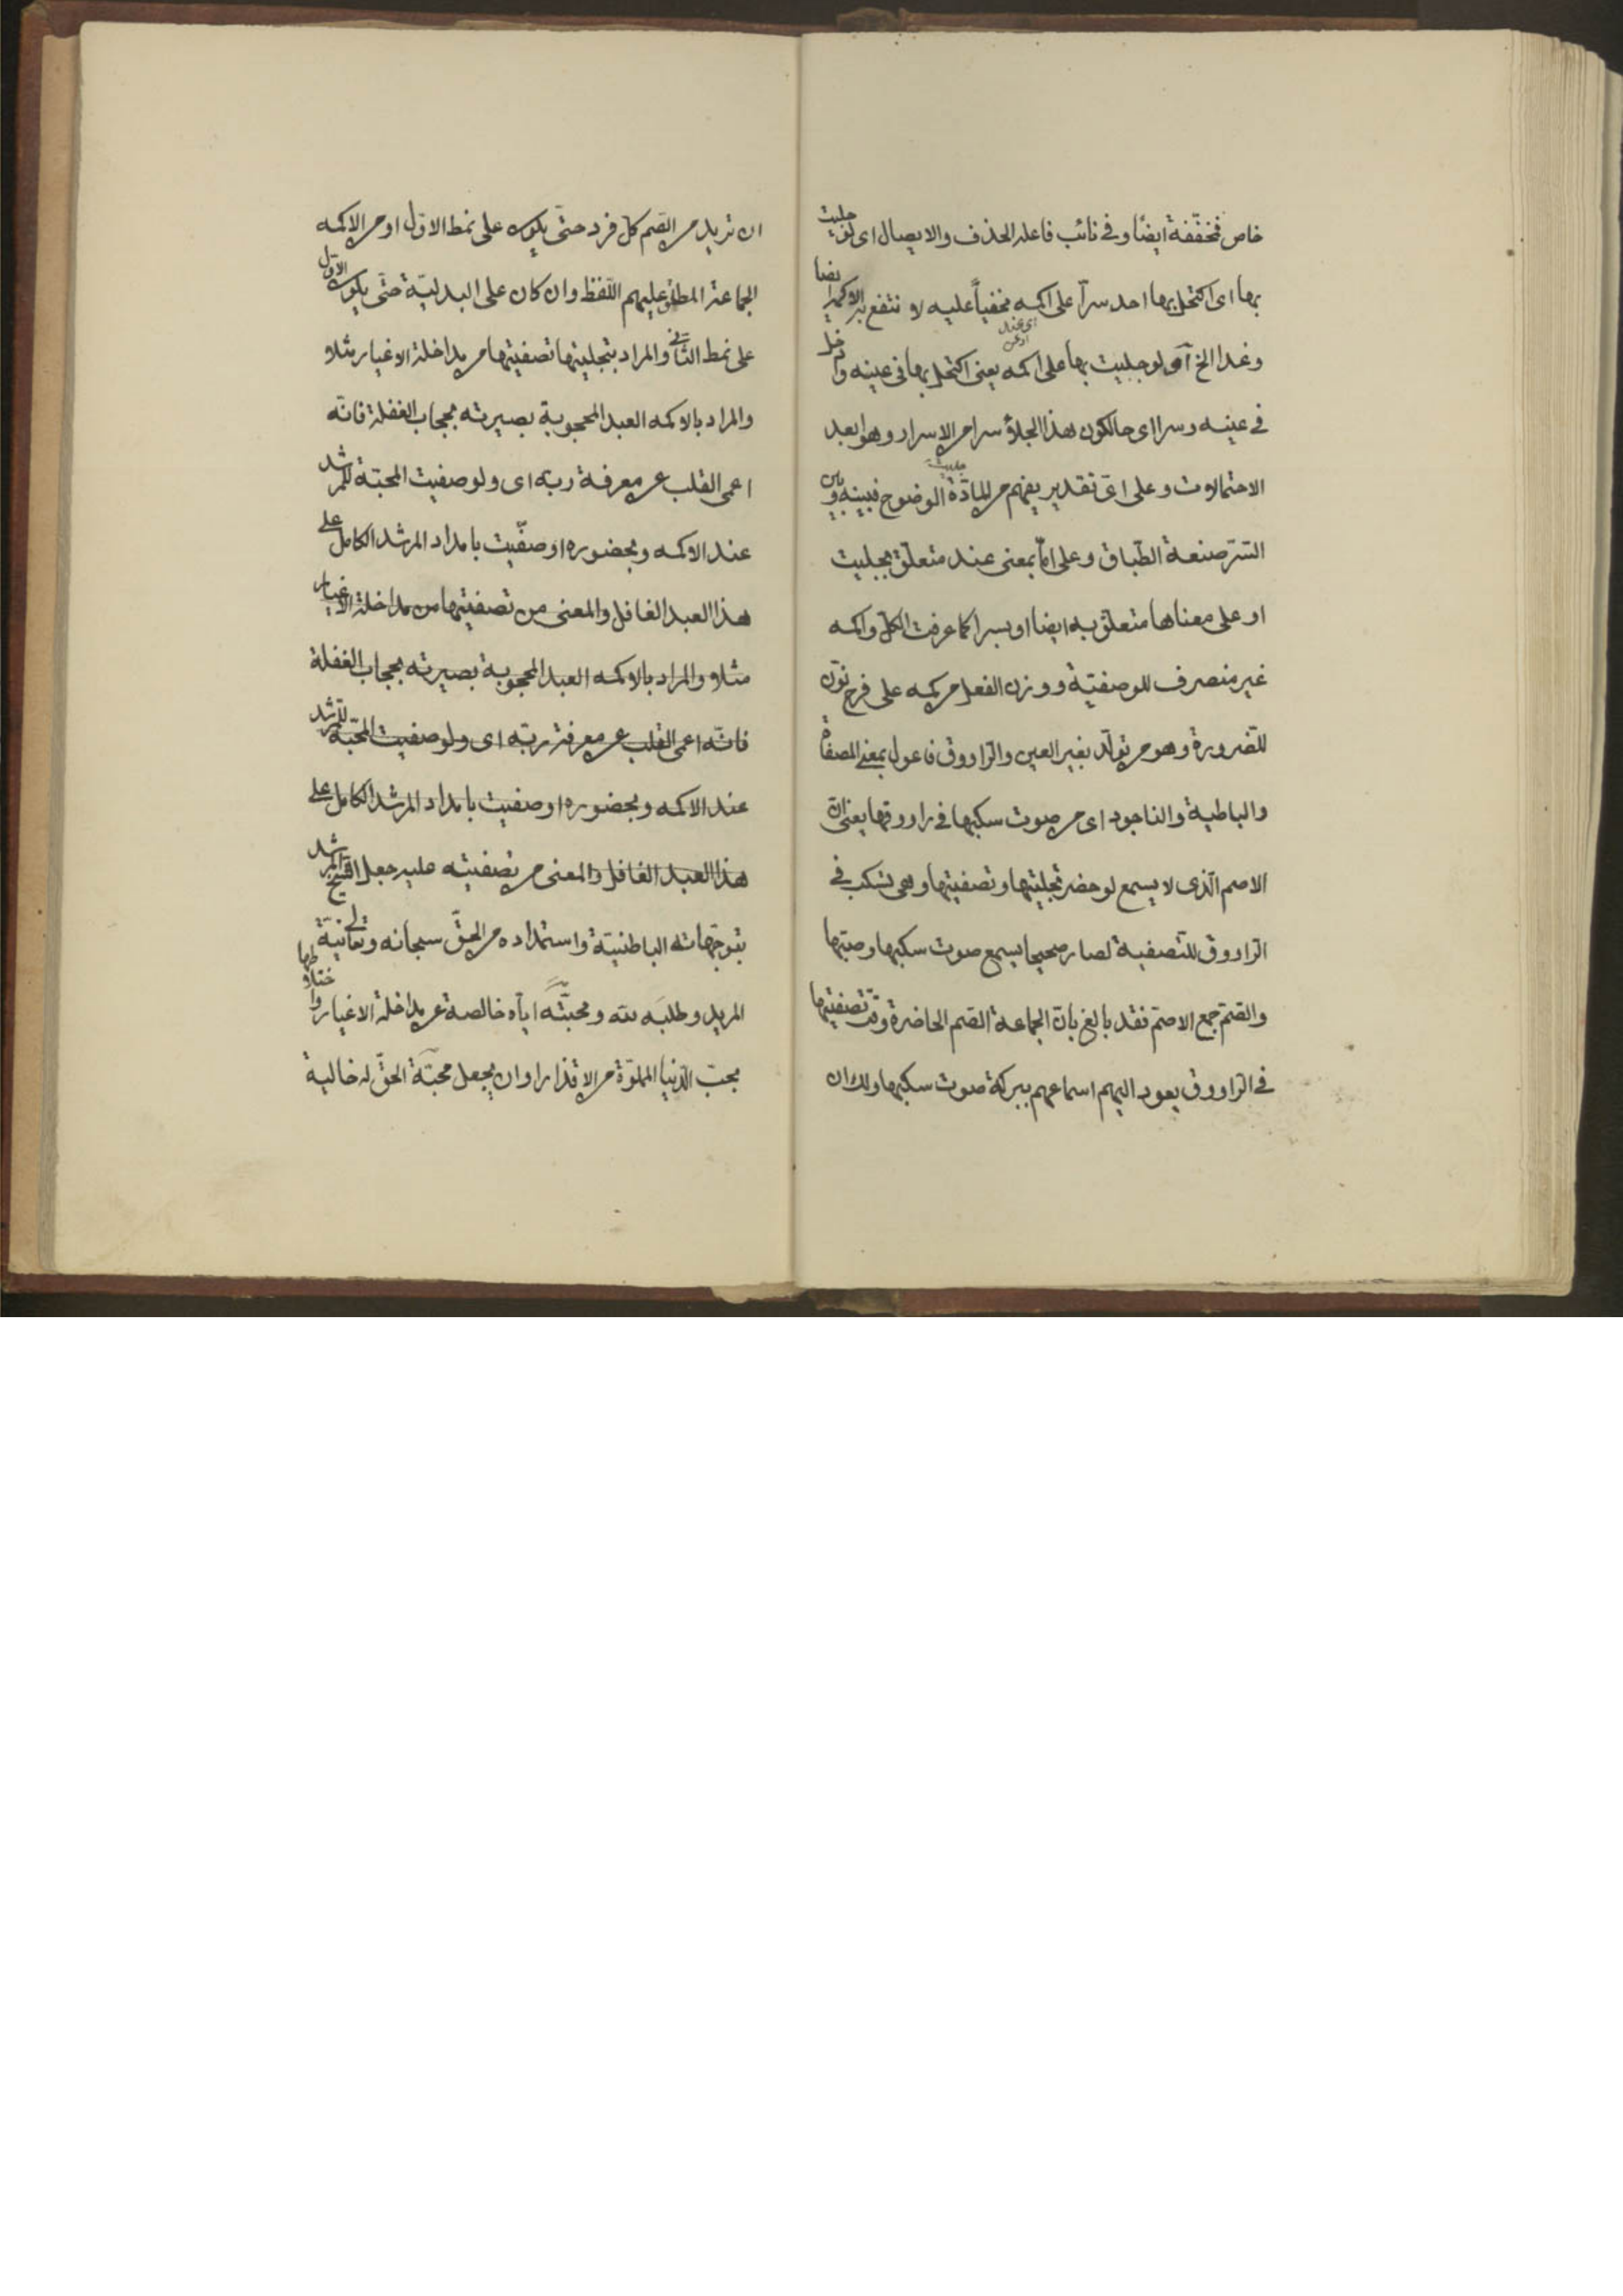 خاص فمخفّفة ايضًا وفى نائب فاعله الحذف والايصال اى لو جليت
بها اى اكتحل بها احد سراً على اكمه مخفياً عليه لانتفع به الاكمه ايضا
وغدا الخ او لو جليت بها على اكمه يعنى اكتحل بها فى عينه وادخل
اى عند
فى عينه وسرا اى حالكون هذا الجلاء سرا من الاسرار وهو ابعد
الاحتمالات وعلى اىّ تقدير يفهم من المادّة جليت الوضوح فبينه وبين
السّتر صنعة الطّباق وعلى امّا بمعنى عند متعلّق بجليت
او على معناها متعلّق به ايضا او بسرا كما عرفت الكلّ واكمه
غير منصرف للوصفيّة ووزن الفعل من كمه على فرح نوّن
للضّرورة وهو من تولّد بغير العين والرّاووق فاعول بمعنى المصفاة
والباطية والناجود اى من صوت سكبها فى راووقها يعنى انّ
الاصم الّذى لا يسمع لو حضر تجليتها وتصفيتها وهى تسكب فى
الرّاووق للتّصفية لصار صحيحا يسمع صوت سكبها وصبّها
والصّم جمع الاصمّ فقد بالغ بانّ الجماعة الصّم الحاضرة وقت تصفيتها
فى الرّاووق يعود اليهم اسماعهم ببركة صوت سكبها ولك ان
ان تريد من الصّم كلّ فرد حتّى يكون على نمط الاوّل او من الاكمه
الجماعة المطلق عليهم اللّفظ وان كان على البدليّة حتّى يكون الاوّل
على نمط الثّانى والمراد بتجليتها تصفيتها من مداخلة الاغيار مثلا
والمراد بالاكمه العبد المحجوبة بصيرته بحجاب الغفلة فانّه
اعمى القلب عن معرفة ربه اى ولو صفيت المحبّة للمرشد
عند الاكمه وبحضوره او صفّيت بامداد المرشد الكامل على
هذا العبد الغافل والمعنى من تصفيتها من مداخلة الاغيار
مثلا والمراد بالاكمه العبد المحجوبة بصيرته بحجاب الغفلة
فانّه اعمى القلب عن معرفة ربّه اى ولو صفيت المحبّة للمرشد
عند الاكمه وبحضوره او صفيت بامداد المرشد الكامل على
هذا العبد الغافل والمعنى من تصفيته عليه جعل الشيخ المرشد
بتوجّهاته الباطنيّة واستمداده من الحقّ سبحانه وتعالى نيّة
المريد وطلبه لله ومحبّته ايّاه خالصة عن مداخلة الاغيار واختلاطها
بحبّ الدّنيا المملوّة من الاقذار او ان يجعل محبّة الحقّ له خالية